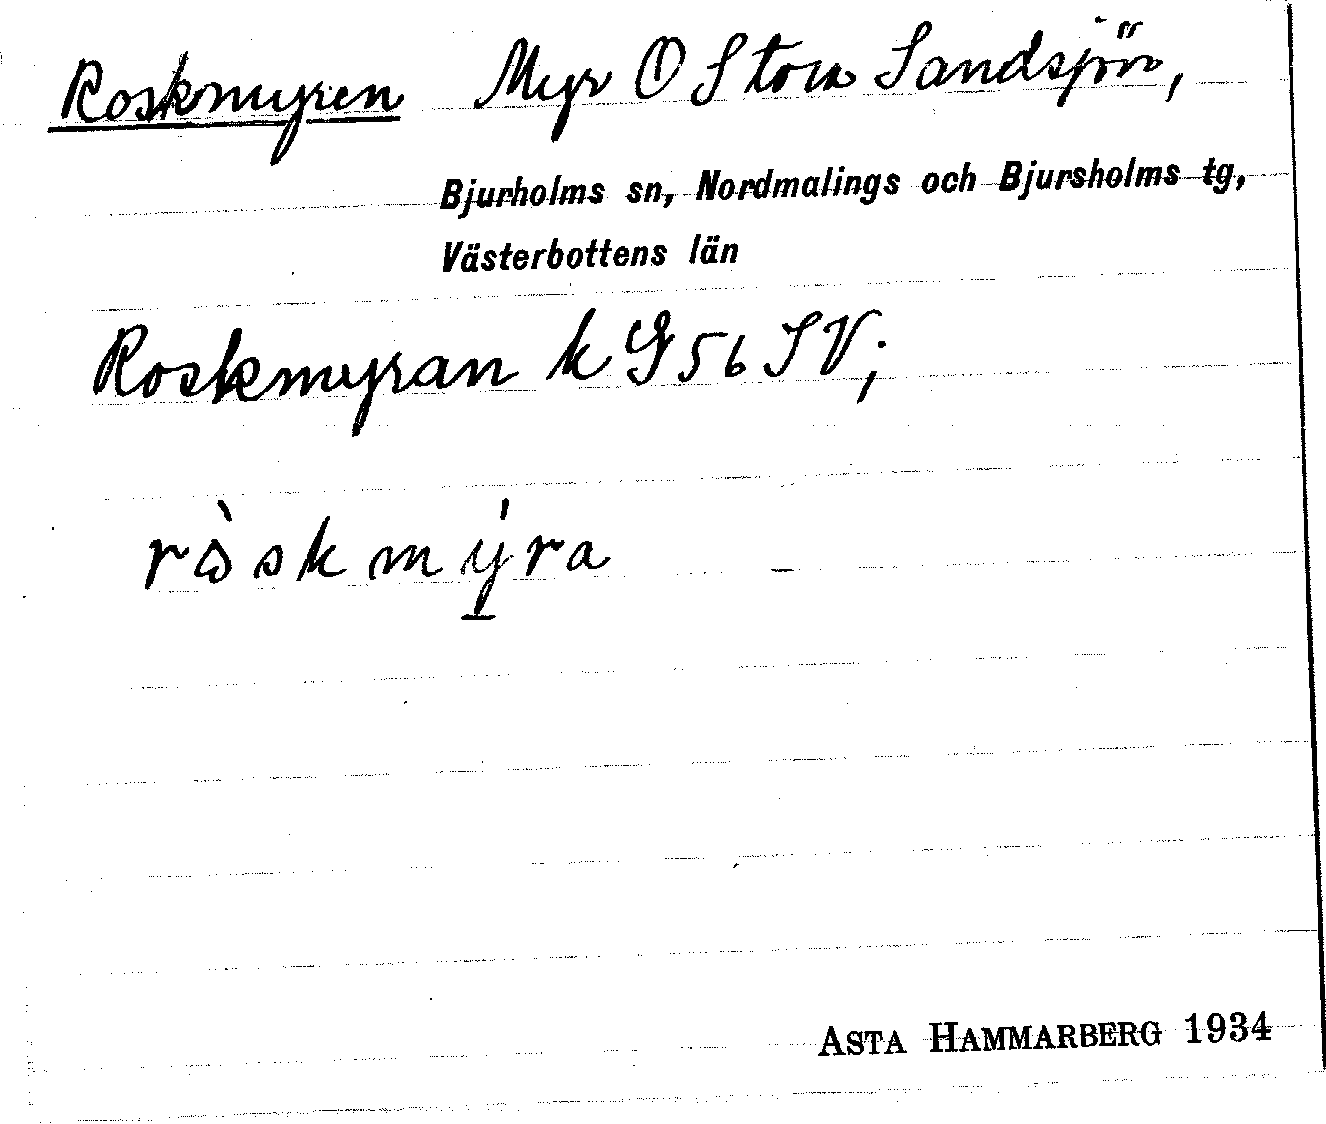 Roskmyren Myr O Stora Sandsjön,
Bjurholms sn, Nordmalings och Bjursholms tg,
Västerbottens län
Roskmyran k G56 SV;
ròskmýra
ASTA HAMMARBERG 1934